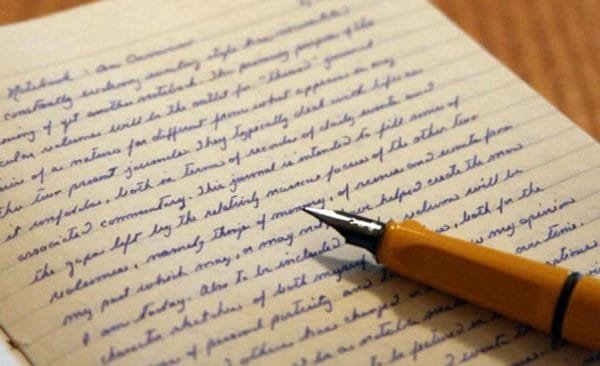 Notebook : An Overview
constantly evolving writing style has necessitated
opening of yet another notebook. The primary purpose of the
volumes will be the outlet for "themed" journal
of a nature far different from what appears in my
other two present journals. They typically deal with life as
it unfolds, both in terms of recorder of daily events and
associated commentary. This journal is intended to fill some of
the gaps left by the relatively narrow focus of the other two
volumes, namely things of memory, of reminis and events from
my past which may, or may not, have helped create the man
I am today. Also to be included volume will be
character sketches of both myself , both for the
of personal posterity and my opinion
others has changed over time.
to be as notable
to feature in